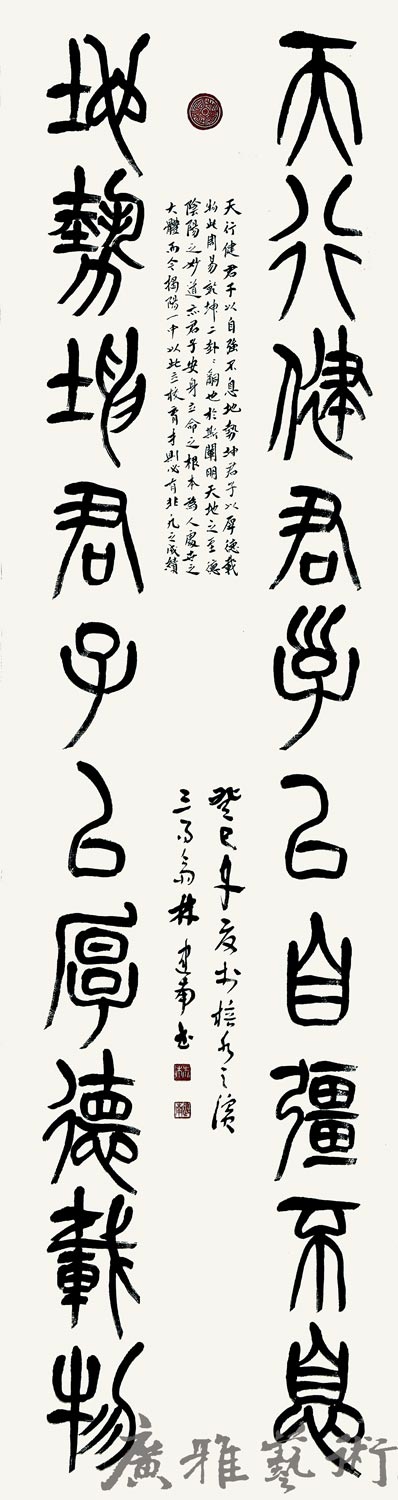 天行健君子以自彊不息
地勢坤君子以厚德載物
天行健君子以自强不息地勢坤君子以厚德載
物此周易乾坤二卦之辭也於斯闡明天地之至德
陰陽之妙道亦君子安身立命之根本為人處世之
大體而今揭陽一中以此立校育才則必有非凡之成績
癸巳年夏於榕水之濱
三萬翁林建南書
廣雅藝術